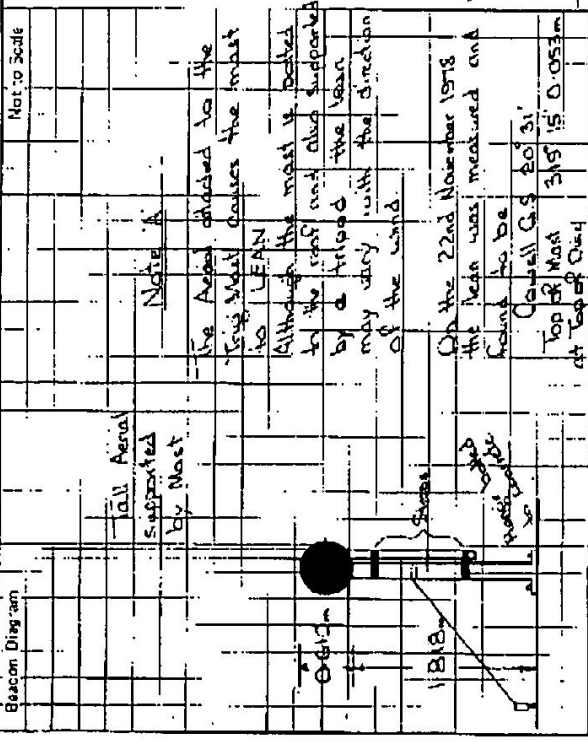 Beacon Diagram
Not to Scale
Tall Aerial
supported
by Mast
0.613m
1.818m
Straps
Note 'A'
The Aerial attached to the
Trig Mast causes the mast
to LEAN
Although the mast is bolted
to the roof and also supported
by a tripod the lean
may vary with the direction
of the wind
On the 22nd November 1978
the lean was measured and
found to be
Cowell G.S 20° 31'
Top of Mast 315° 15' 0.053m
at Top of